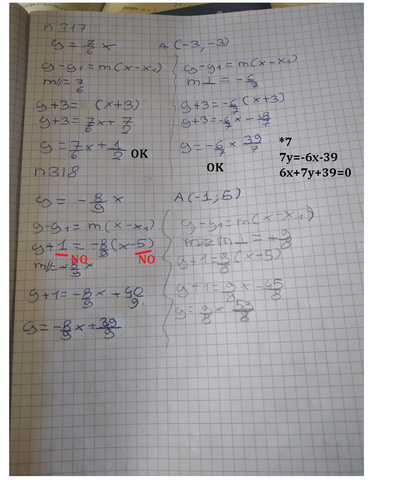 n317
y = 7/6 x A(-3,-3)
y-y1 = m(x-x1)
m// = 7/6
y+3 = (x+3)
y+3 = 7/6 x + 7/2
y = 7/6 x + 1/2
OK
y-y1 = m(x-x1)
m⊥ = -6/7
y+3 = -6/7 (x+3)
y+3 = -6/7 x - 18/7
y = -6/7 x 39/7
OK
*7
7y=-6x-39
6x+7y+39=0
n318
y = -8/9 x A(-1,5)
y-y1 = m(x-x1)
y+1 = -8/9 (x-5)
NO NO
m// -8/9 x
y+1 = -8/9 x + 40/9
y = -8/9 x + 39/9
y-y1 = m(x-x1)
m⊥ = +9/8
y+1 = 9/8 (x-5)
y+1 = 9/8 x - 45/8
y = 9/8 x 53/8